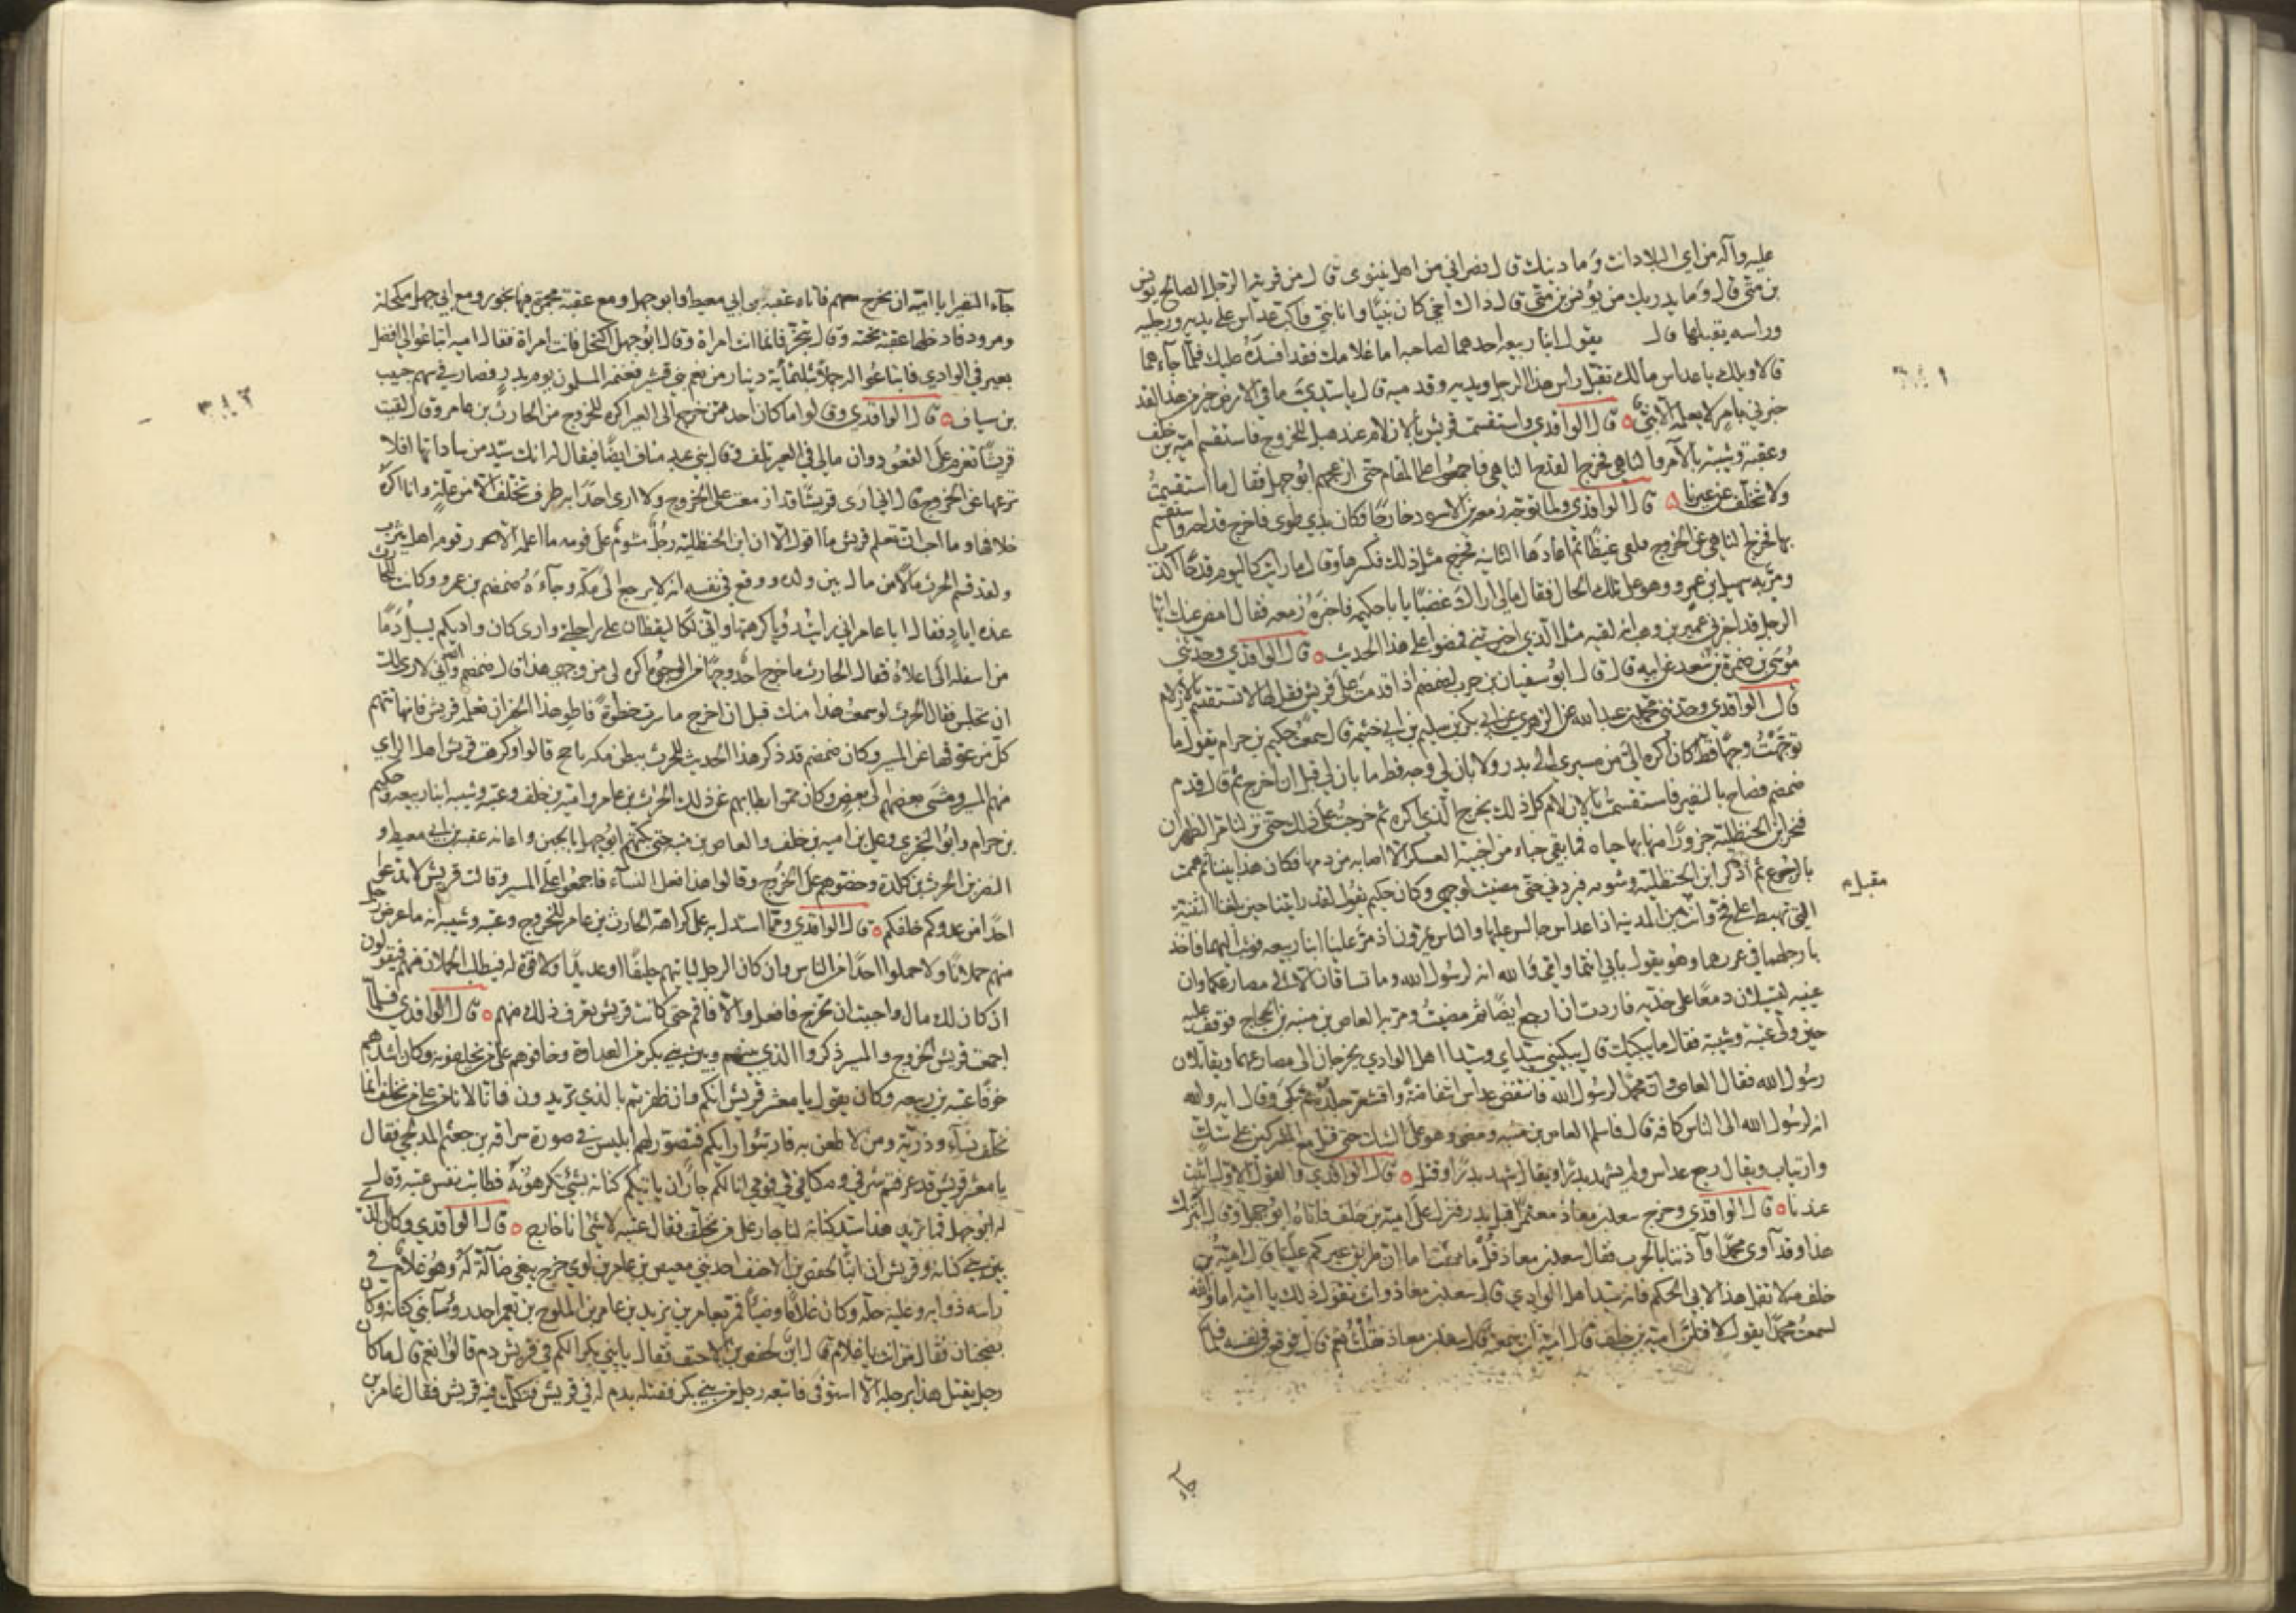 عليه وآله من اي البلاد انت وما دينك قال نصراني من اهل نينوى قال من قرية الرجل الصالح يونس
بن متى قال وما يدريك من يونس بن متى قال ذاك اخي كان نبيا وانا نبي فاكب عداس على يديه ورجليه
وراسه يقبلها قال يقول ابنا ربيعه احدهما لصاحبه اما غلامك فقد افسده عليك فلما جاءهما
قالا ويلك يا عداس مالك تقبل راس هذا الرجل ويديه وقدميه قال يا سيدي ما في الارض خير من هذا لقد
خبرني بامر لا يعلمه الا نبي قال الواقدي واستقسمت قريش بالازلام عند هبل للخروج فاستقسم امية بن خلف
وعقبة وشيبة بالآمر والناهي فخرج القدح الناهي فاجمعوا على المقام حتى ازعجهم ابو جهل فقال ما استقسمت
ولا نتخلف عن عيرنا قال الواقدي ولما توجه زمعه بن الاسود خارجا فكان بذي طوى فاخرج قداحه واستقسم
بها فخرج الناهي عن الخروج فلقي غيظا ثم اعادها الثانيه فخرج مثل ذلك فكسرها وقال ما رايت كاليوم قدحا اكذب
ومر به سهيل بن عمرو وهو على تلك الحال فقال مالي اراك غضبا يا با حكيمه فاخبره زمعه فقال امض عنك ايها
الرجل قد اخبرني عمير بن وهب انه لقيه مثل الذي اخبرتني فمضوا على هذا الحديث قال الواقدي وحدثني
موسى بن ضمرة بن سعد عن ابيه قال قال ابو سفيان بن حرب لضمضم اذا قدمت على قريش فقل لها لا تستقسم بالازلام
قال الواقدي وحدثني محمد بن عبد الله عن الزهري عن ابي بكر بن سليم بن ابي خيثمه قال سمعت حكيم بن حزام يقول ما
توجهت وجها قط كان اكره الي من مسيري الى بدر ولا بان لي في وجه قط ما بان لي قبل ان اخرج ثم قال قدم
ضمضم فصاح بالنفير فاستقسمت بالازلام كل ذلك يخرج الذي اكره ثم خرجت على ذلك حتى نزلنا مر الظهران
فنحر ابن الحنظلية جزورا منها بها حياه فما بقي خباء من اخبية العسكر الا اصابه من دمها فكان هذا بينا ثم هممت
بالرجوع ثم اذكر ابن الحنظلية وشومه فيردني حتى مضيت لوجهي وكان حكيم يقول لقد رايتنا حين بلغنا الثنية
مقبل م
التي تهبط على فخ وانت من المدينه اذا عداس جالس عليها والناس يمرون اذ مر علينا ابنا ربيعه فوثب اليهما فاخذ
بارجلهما في غرزهما وهو يقول بابي انتما وامي والله انه لرسول الله وما تساقان الا الى مصارعكما وان
عينيه لتسيلان دمعا على خديه فاردت ان ارجع ايضا ثم مضيت ومر به العاص بن منبه بن الحجاج فوقف عليه
حين ولى عتبة وشيبة فقال ما يبكيك قال يبكيني سيداي وسيدا اهل الوادي يخرجان الى مصارعهما ويقاتلان
رسول الله فقال العاص وان محمدا لرسول الله فانتفض عداس انتفاضة واقشعر جلده ثم بكى وقال اي والله
انه لرسول الله الى الناس كافة قال فاسلم العاص بن منبه ومضى وهو على الشك حتى قتل مع المشركين على شك
وارتياب ويقال رجع عداس ولم يشهد بدرا ويقال شهد بدرا وقتل قال الواقدي والقول الاول اثبت
عندنا قال الواقدي وخرج سعد بن معاذ معتمرا قبل بدر فنزل على امية بن خلف فاتاه ابو جهل وقال اتترك
هذا وقد آوى محمدا وآذننا بالحرب فقال سعد بن معاذ قل ما شئت اما ان طريق عيركم علينا قال امية بن
خلف مه لا تقل هذا لابي الحكم فانه سيد اهل الوادي قال سعد بن معاذ وانت تقول ذلك يا امية اما والله
لسمعت محمدا يقول لاقتلن امية بن خلف قال امية انت سمعته قال سعد بن معاذ فقلت نعم قال فوقع في نفسه فلما
جآء
٣٨٢
جآء النفير ابا امية ان يخرج معهم فاتاه عقبة بن ابي معيط وابو جهل ومع عقبة مجمرة فيها بخور ومع ابي جهل مكحلة
ومرود فادخلها عقبة تحته وقال تبخر فانما انت امراة وقال ابو جهل اكتحل فانت امراة فقال اميه ابتاعوا لي افضل
بعير في الوادي فابتاعوا له جملا بثلثمائة دينار من نعم بني قشير فغنمه المسلمون يوم بدر فصار في سهم خبيب
بن سياف قال الواقدي وقالوا ما كان احد ممن خرج الى العير اكره للخروج من الحارث بن عامر وقال ليت
قريشا تعزم على القعود وان مالي في العير تلف ومال بني عبد مناف ايضا فيقال له انك سيد من ساداتها افلا
تزعها عن الخروج قال اني ارى قريشا قد ازمعت على الخروج ولا ارى احدا به طرف تخلف الا من علة وانا اكره
خلافها وما احب ان تعلم قريش ما اقول الا ان ابن الحنظلية رجل مشوم على قومه ما اعلمه الا يحرز قومه اهل يثرب
ولقد قسم الحرث مالا من ماله بين ولده ووقع في نفسه انه لا يرجع الى مكه وجآءه ضمضم بن عمرو وكانت للحارث
عنده اياد فقال ابا عامر اني رايت رؤيا كرهتها واني لكاليقظان على راحلتي وارى كان واديكم يسيل دما
من اسفله الى اعلاه فقال الحارث ما خرج احد وجها من الوجوه اكره له من وجهي هذا قال ضمضم والله اني لارى لك
ان تجلس فقال الحرث لو سمعت هذا منك قبل ان اخرج ما سرت خطوة فاطو هذا الخبر ان تعلمه قريش فانها تتهم
كل من عوقها عن المسير وكان ضمضم قد ذكر هذا الحديث للحرث ببطن مكه ياجج قالوا وكرهت قريش اهل الراي
منهم المسير ومشى بعضهم الى بعض وكان ممن ابطا بهم عن ذلك الحارث بن عامر وامية بن خلف وعتبة وشيبه ابنا ربيعه وحكيم
بن حزام وابو البختري وعلي بن امية بن خلف والعاص بن منبه حتى بكتهم ابو جهل بالجبن واعانه عقبة بن ابي معيط و
النضر بن الحرث بن كلدة وحضوهم على الخروج وقالوا هذا فعل النسآء فاجمعوا على المسير وقالت قريش لا تدعوا
احدا من عدوكم خلفكم قال الواقدي ومما استدل به على كراهة الحارث بن عامر للخروج وعتبه وشيبه انه ما عرض رجل
منهم حملانا ولا حملوا احدا من الناس وان كان الرجل لياتيهم حليفا او عديدا ولا قوة له فيطلب الحملان منهم فيقولون
ان كان لك مال واحببت ان تخرج فافعل والا فاقم حتى كانت قريش تعرف ذلك منهم قال الواقدي فلما
اجمعت قريش الخروج والمسير ذكروا الذي بينهم وبين بني بكر من العداوة وخافوهم على من يخلفونه وكان اشدهم
خوفا عتبه بن ربيعه وكان يقول يا معشر قريش انكم وان ظفرتم بالذي تريدون فانا لا نامن على من نخلف انما
نخلف نسآء وذرية ومن لا طعن به فارتئوا رايكم فتصور لهم ابليس في صورة سراقه بن جعشم المدلجي فقال
يا معشر قريش قد عرفتم شرفي ومكاني في قومي انا لكم جار ان ياتيكم كنانه بشئ تكرهونه فطابت نفس عتبه وقال
له ابو جهل فما تريد هذا سيد كنانه لنا جار على من نخلف فقال عتبه لا شئ انا خارج قال الواقدي وكان الذي
بين بني كنانه وقريش ان ابنا لحفص بن الاخيف احد بني معيص بن عامر بن لوى خرج يبغي ضآلة له وهو غلام في
راسه ذوابه وعليه حله وكان غلاما وضيئا فمر بعامر بن يزيد بن عامر بن الملوح بن يعمر احد رؤسآ بني كنانه وكان
بضجنان فقال من انت يا غلام قال ابن لحفص بن الاخيف فقال يا بني بكر الكم في قريش دم قالوا نعم قال ما كان
رجل يقتل هذا برجله الا استوفى فاتبعه رجل من بني بكر فقتله بدم له في قريش فتكلمت فيه قريش فقال عامر بن